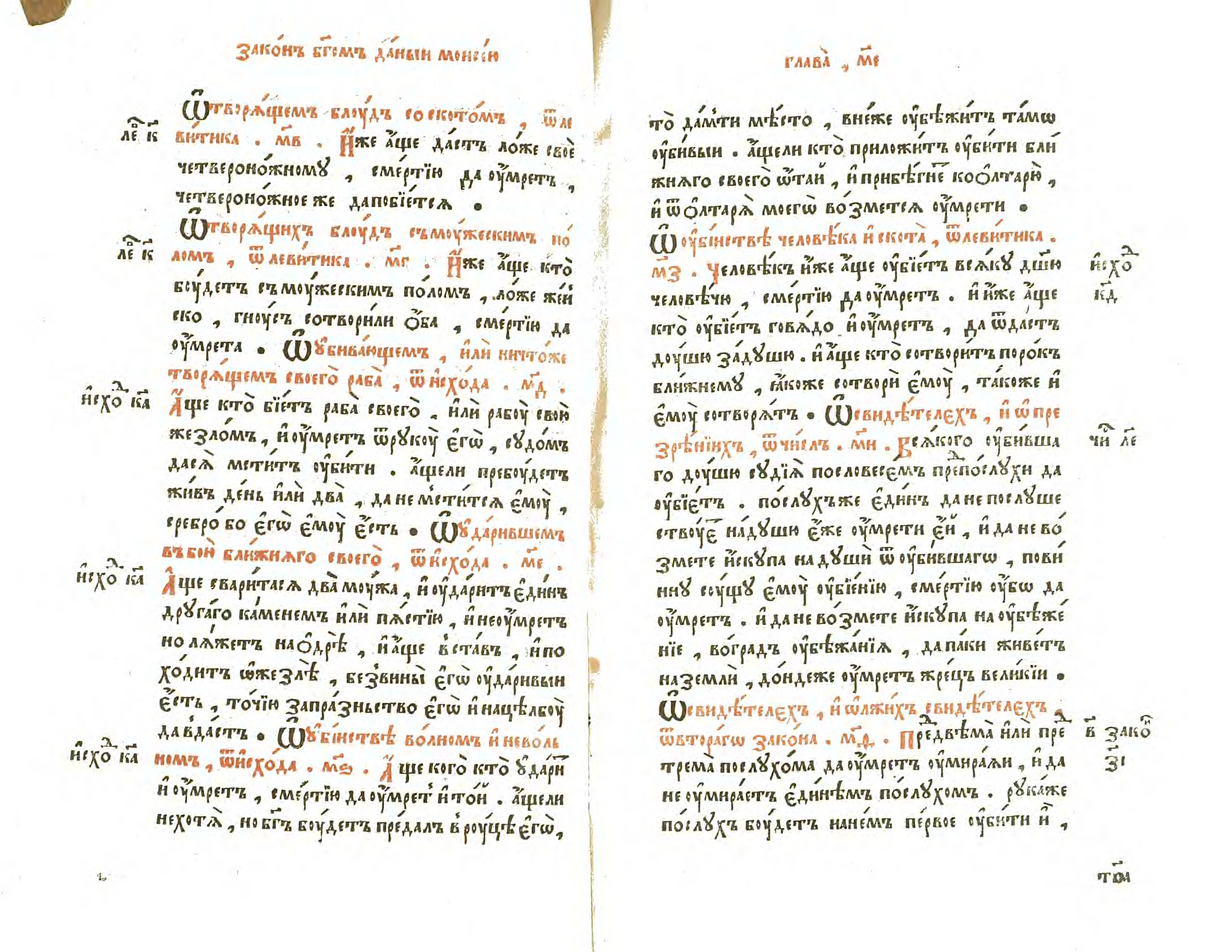 Зако́нъ бг҃омъ да́ныи моисе́ю
Ѿтворѧ́щемъ блоу́дъ со ското́мъ , ѿ ле
ле҃ к҃
ви́тика . м҃в . И҆́же а҆́ще да́стъ ло́же своѐ
четвероно́жному , сме́ртїю да оу҆́мретъ ,
четвероно́жное же да побїе́тсѧ .
Ѿтворѧ́щихъ блоу́дъ съ моу́жескимъ по́
ле҃ к҃
ломъ , ѿ леви́тика . м҃г . И҆́же а҆́ще кто̀
боу́детъ съ моу́жескимъ по́ломъ , ло́же же́н
ско , гноу́съ сотвори́ли о҆́ба , сме́ртїю да
оу҆́мрета . Ѿ убива́ющемъ , и҆лѝ ничто́же
творѧ́щемъ своего̀ раба̀ , ѿ и҆схо́да . м҃д .
и҆схо́д к҃а
А҆́ще кто̀ бїе́тъ раба̀ своего̀ , и҆лѝ рабоу̀ свою̀
же зло́мъ , и҆ оу҆́мретъ ѿ рукоу̀ е҆гѡ̀ , судо́мъ
да сѧ̀ мсти́тъ оуби́ти . а҆́щели пребоу́детъ
жи́въ де́нь и҆лѝ два̀ , да не мсти́тсѧ е҆моу̀ ,
сребро́ бо е҆гѡ̀ е҆моу̀ е҆́сть . Ѿ уда́рившемъ
въ боѝ бли́жнѧго своего̀ , ѿ и҆схо́да . м҃е .
и҆схо́д к҃а
А҆́ще сварита́сѧ два̀ моу́жа , и҆ оуда́ритъ е҆ди́нъ
друга́го ка́менемъ и҆лѝ пѧ́стїю , и҆ не оу҆́мретъ
но лѧ́жетъ на о҆дрѣ̀ , и҆ а҆́ще вста́въ , и҆ по
хо́дитъ ѡ҆ же злѣ̀ , без вины̀ е҆гѡ̀ оуда́ривыи
е҆́сть , то́чїю за пра́зньство е҆гѡ̀ и҆ на цѣлбоу̀
да вда́стъ . Ѿ оубі́иствѣ во́лном и҆ нево́ль
и҆схо́д к҃а
номъ , ѿ и҆схо́да . м҃ѕ . А҆́ще кого кто̀ уда́рит
и҆ оу҆́мретъ , сме́ртїю да оу҆́мрет и҆ то́й . а҆́щели
не хотѧ̀ , но бг҃ъ боу́детъ пре́далъ в роу́цѣ е҆гѡ̀ ,
глава̀ , м҃е
то̀ да́м ти мѣ́сто , вне́же оубѣжи́тъ та́мѡ
оуби́выи . а҆́щели кто̀ приложи́тъ оуби́ти бли́
жнѧго своего̀ ѿта́й , и҆ прибѣ́гне ко о҆лтарю̀ ,
и҆ ѿ о҆лтарѧ̀ моегѡ̀ во́змется оу҆мре́ти .
Ѿ оубі́иствѣ человѣ́ка и҆ скота̀ , ѿ леви́тика .
м҃з . Человѣ́къ и҆́же а҆́ще оубїе́тъ всѧ́ку дш҃ю
и҆схо́д
человѣ́чю , сме́ртїю да оу҆́мретъ . и҆ и҆́же а҆́ще
к҃д
кто̀ оубїе́тъ говѧ́до и҆ оу҆́мретъ , да ѿда́стъ
доу́шю за́душю . и҆ а҆́ще кто̀ сотвори́тъ поро́къ
бли́жнему , ꙗ҆́коже сотворѝ е҆моу̀ , та́коже и҆
е҆моу̀ сотворѧ́тъ . Ѿ свидѣ́телехъ , и҆ ѡ҆ пре
зрѣ́нїихъ , ѿ чи́слъ . м҃и . Всѧ́кого оуби́вша
чи́ ле҃
го доу́шю судїѧ̀ по словесе́мъ препо́слухи да
оубїе́тъ . по́слухъже е҆ди́нъ да не послуше
ствуе́т на́душю е҆́же оу҆мре́ти е҆́й , и҆ да не во́
змете и҆́скупа на душѝ ѿ оуби́вшагѡ , пови́
нну соу́щу е҆моу̀ оубїе́нїю , сме́ртїю оу́бѡ да
оу҆́мретъ . и҆ да не во́змете и҆́скупа на оубѣ́же
нїе , во гра́дъ оубѣжа́нїѧ , да па́ки живе́тъ
на землѝ , до́ндеже оу҆́мретъ жре́цъ вели́кїи .
Ѿ свидѣ́телехъ , и҆ ѡ҆ лжи́хъ свидѣ́телехъ ,
ѿ втора́гѡ зако́на . м҃ѳ . Пред двѣма̀ и҆лѝ пред
в҃ зако́н
трема̀ послу́хома да оу҆́мретъ оу҆мира́ѧи , и҆ да
з҃і
не оу҆мира́етъ е҆ди́нѣмъ по́слухомъ . рука́же
по́слухъ боу́детъ на не́мъ пе́рвое оуби́ти и҆̀ ,